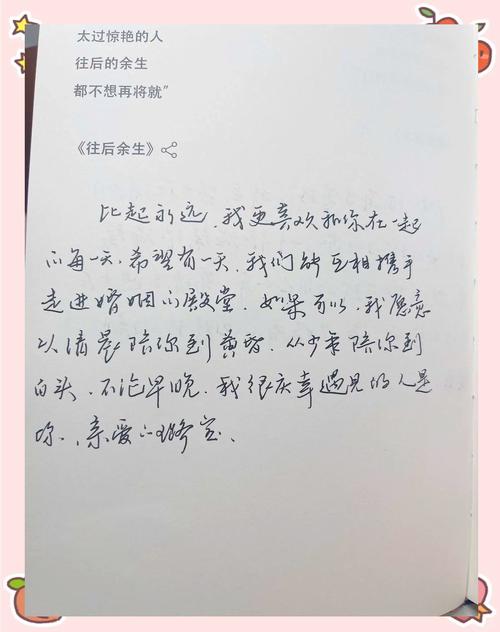 太过惊艳的人
往后的余生
都不想再将就”
《往后余生》
比起永远，我更喜欢和你在一起
的每一天，希望有一天，我们能互相携手
走进婚姻的殿堂，如果可以，我愿意
从清晨陪你到黄昏，从少年陪你到
白头，不论早晚，我很庆幸遇见的人是
你，亲爱的宝、